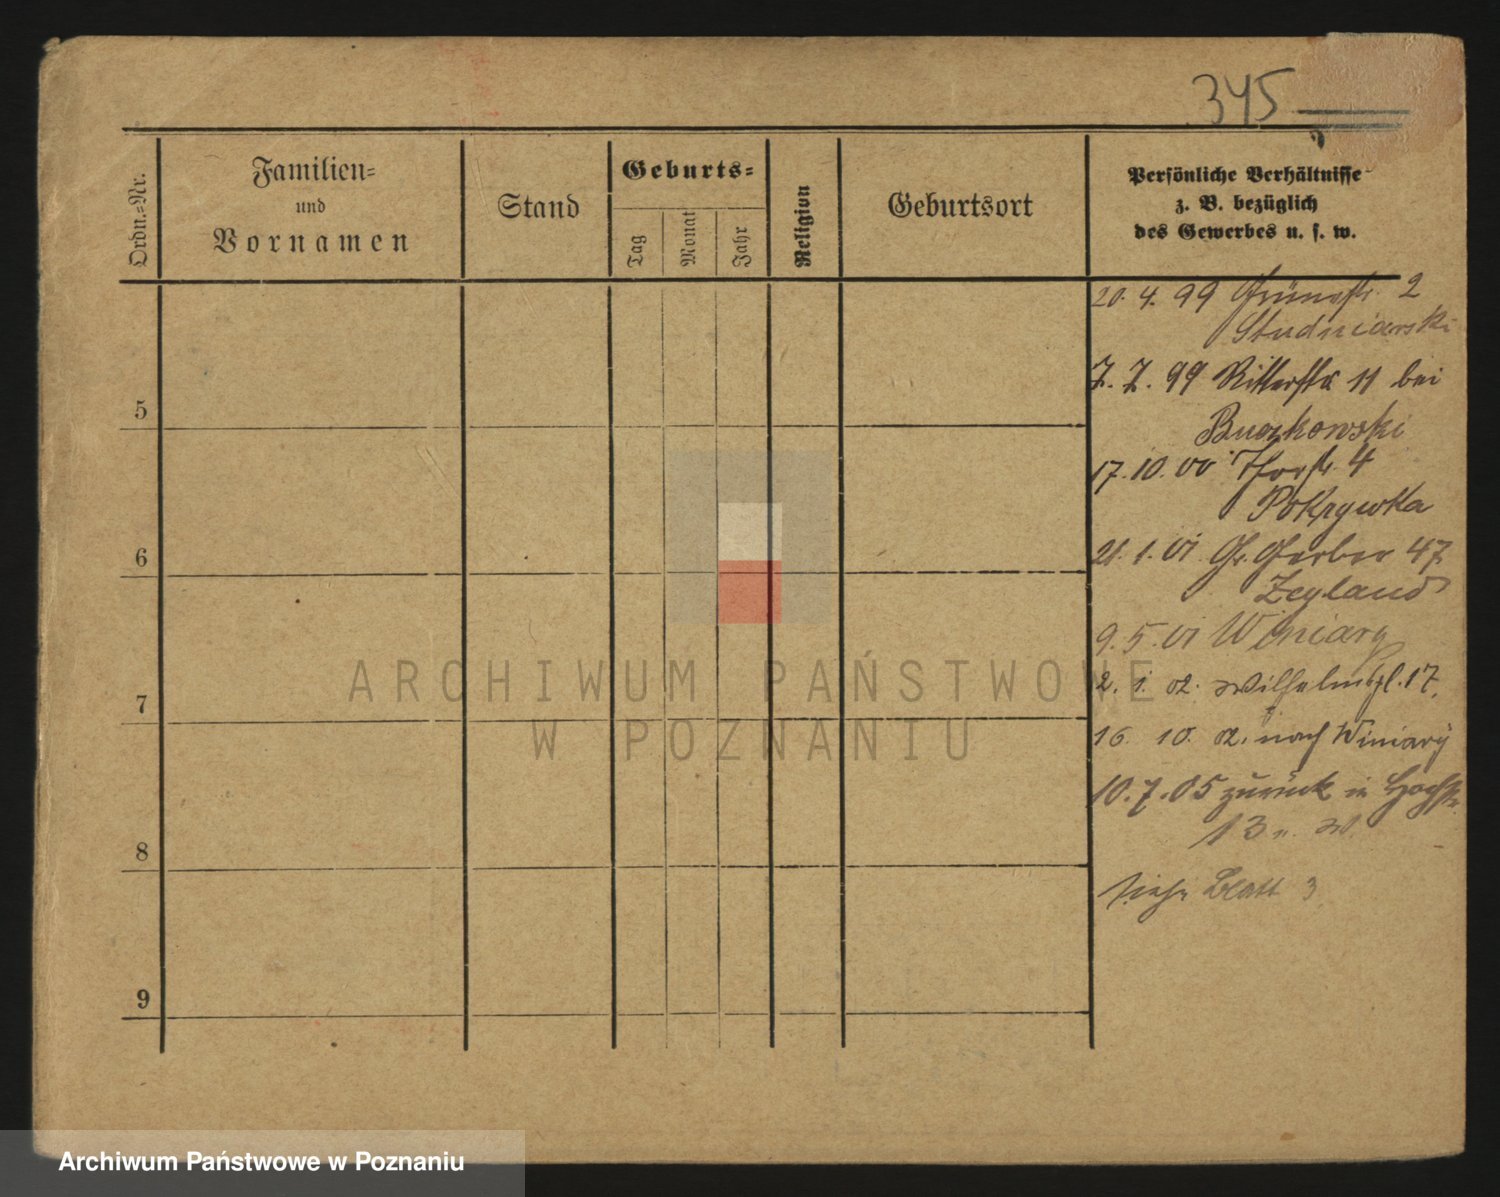 345
Ordn.=Nr.
Familien=
und
Vornamen
Stand
Geburts=
Tag
Monat
Jahr
Religion
Geburtsort
Persönliche Verhältnisse
z. B. bezüglich
des Gewerbes u. s. w.
20. 4. 99 Grünestr. 2
Studniarski
7. 7. 99 Ritterstr. 11 bei
Buczkowski
17. 10. 00 Thorstr. 4
Pokrzywka
21. 1. 01 Gr. Gerber 47
Zeyland
9. 5. 01 Winiary
2. 1. 02. Wilhelmspl. 17.
16. 10. 02. nach Winiary
10. 7. 05 zurück in Hochstr.
13
Siehe Blatt 3
5
6
7
8
9
ARCHIWUM PAŃSTWOWE
W POZNANIU
Archiwum Państwowe w Poznaniu